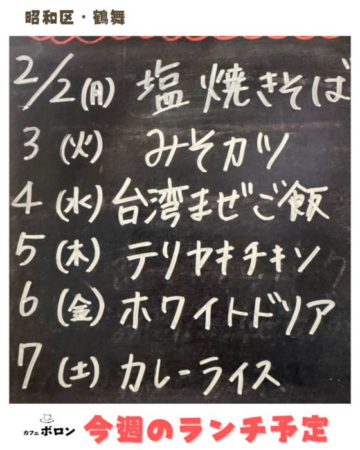 昭和区・鶴舞
2/2(月) 塩焼きそば
3(火) みそカツ
4(水) 台湾まぜご飯
5(木) テリヤキチキン
6(金) ホワイトドリア
7(土) カレーライス
カフェ ポロン 今週のランチ予定